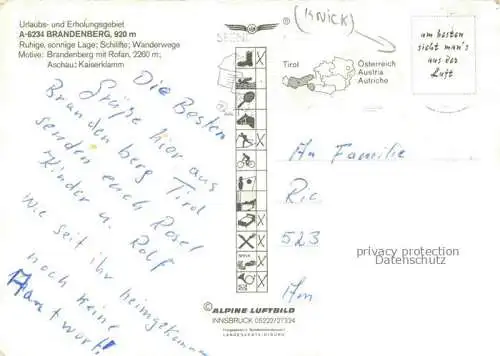 Urlaubs- und Erholungsgebiet
A-6234 BRANDENBERG, 920 m
Ruhige, sonnige Lage; Schilifte; Wanderwege
Motive: Brandenberg mit Rofan, 2260 m;
Aschau; Kaiserklamm
(KNICK)
um besten
sieht man's
aus der
Luft
Tirol
Österreich
Austria
Autriche
Die Besten
Grüße hier aus
Brandenberg Tirol
senden euch Rosel
Kinder u. Rolf
Wie seit ihr heimgekommen
noch keine
Antwort!!
An Familie
Ric
523
privacy protection
Datenschutz
©ALPINE LUFTBILD
INNSBRUCK 05222/27324